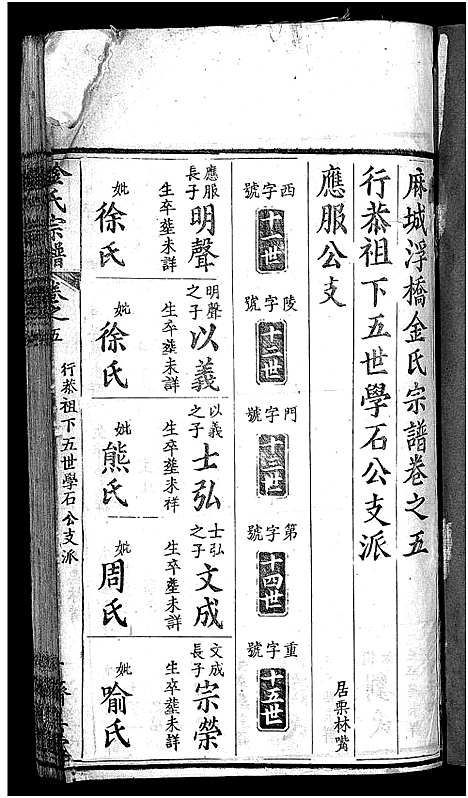 麻城浮橋金氏宗譜卷之五
行恭祖下五世學石公支派
應服公支
居栗林嘴
西字號
十一世
陵字號
十二世
門字號
十三世
第字號
十四世
重字號
十五世
應服長子
明聲
生卒塟未詳
妣
徐氏
明聲之子
以義
生卒塟未詳
妣
徐氏
以義之子
士弘
生卒塟未祥
妣
熊氏
士弘之子
文成
生卒塟未詳
妣
周氏
文成長子
宗榮
生卒塟未詳
妣
喻氏
金氏宗譜
卷之五
行恭祖下五世學石公支派